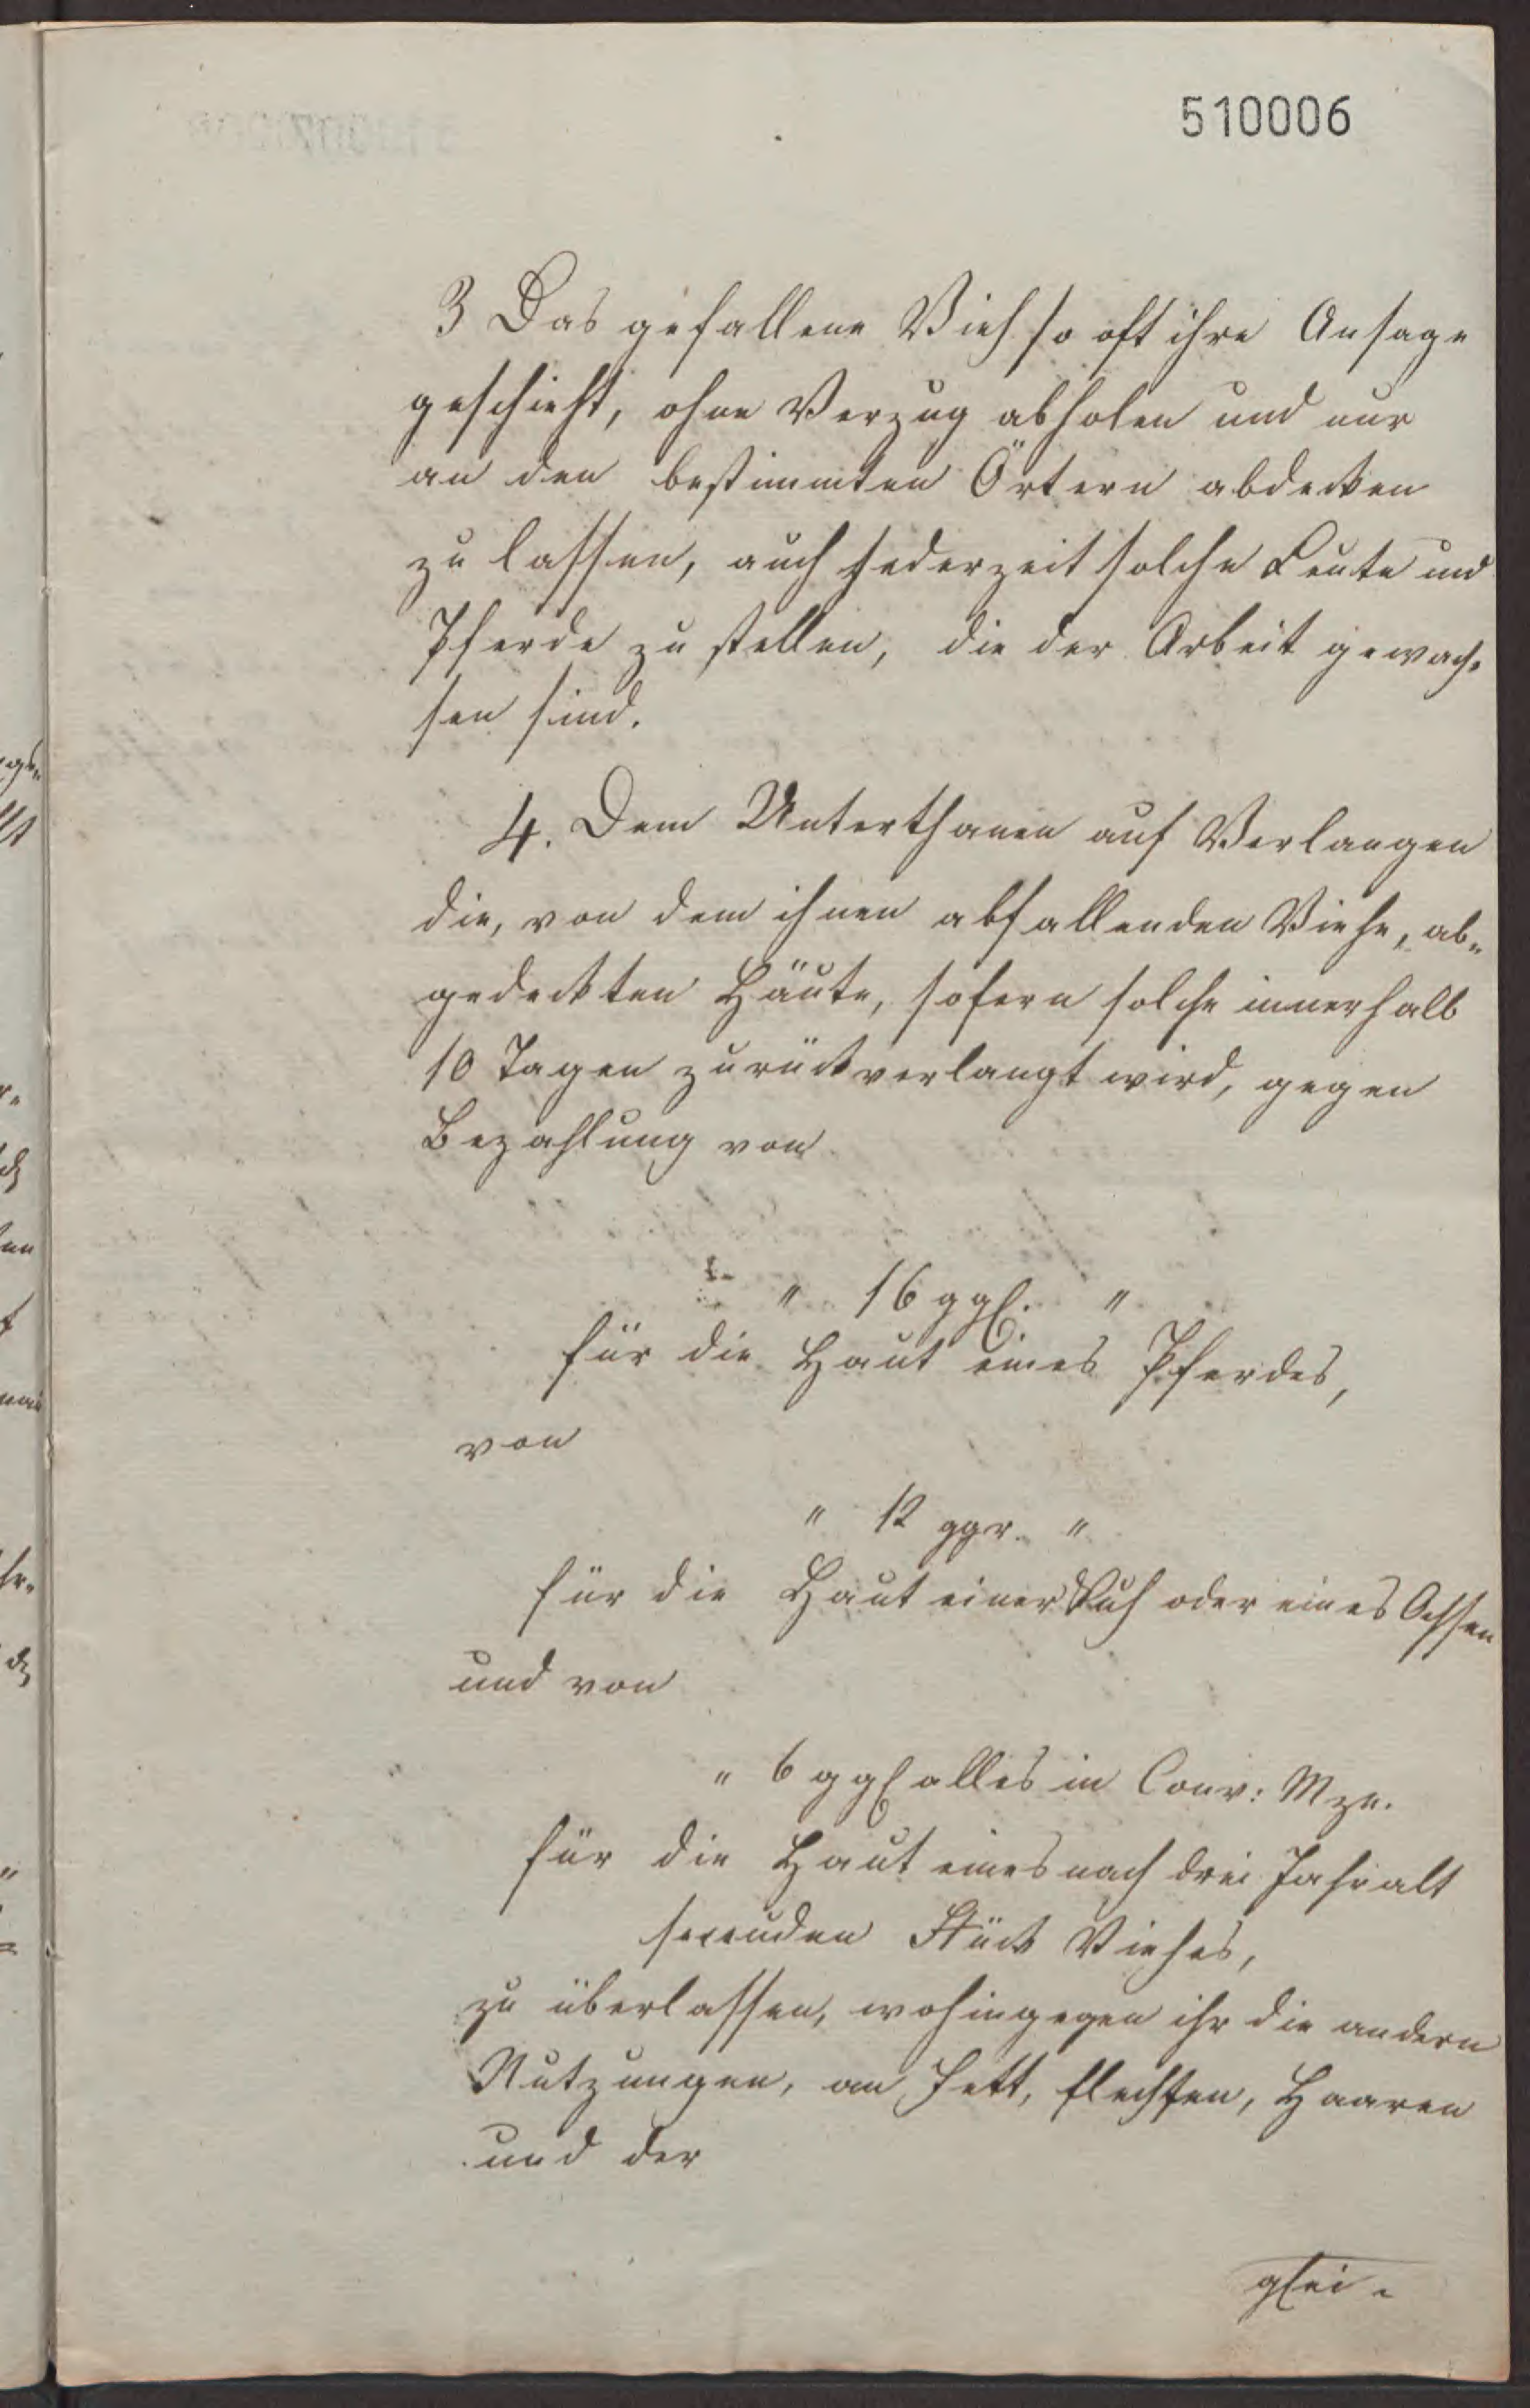 510006
3 Das gefallene Vieh so oft ihre Ansage
geschieht, ohne Verzug abholen und nur
an den bestimmten Örtern abdecken
zu lassen, auch jederzeit solche Leute und
Pferde zu stellen, die der Arbeit gewach-
sen sind.
4. Dem Unterthanen auf Verlangen
die, von dem ihnen abfallenden Viehe, ab-
gedeckten Häute, sofern solche innerhalb
10 Tagen zurückverlangt wird, gegen
Bezahlung von
" 16 ggl. "
für die Haut eines Pferdes,
von
" 12 ggr. "
für die Haut einer Kuh oder eines Ochsen
und von
" 6 ggl alles in Conv: Mze.
für die Haut eines nach drei Jahr alt
seienden Stück Viehes,
zu überlassen, wohingegen ihr die andern
Nutzungen, an Fett, Flechsen, Haaren
und der
glei-